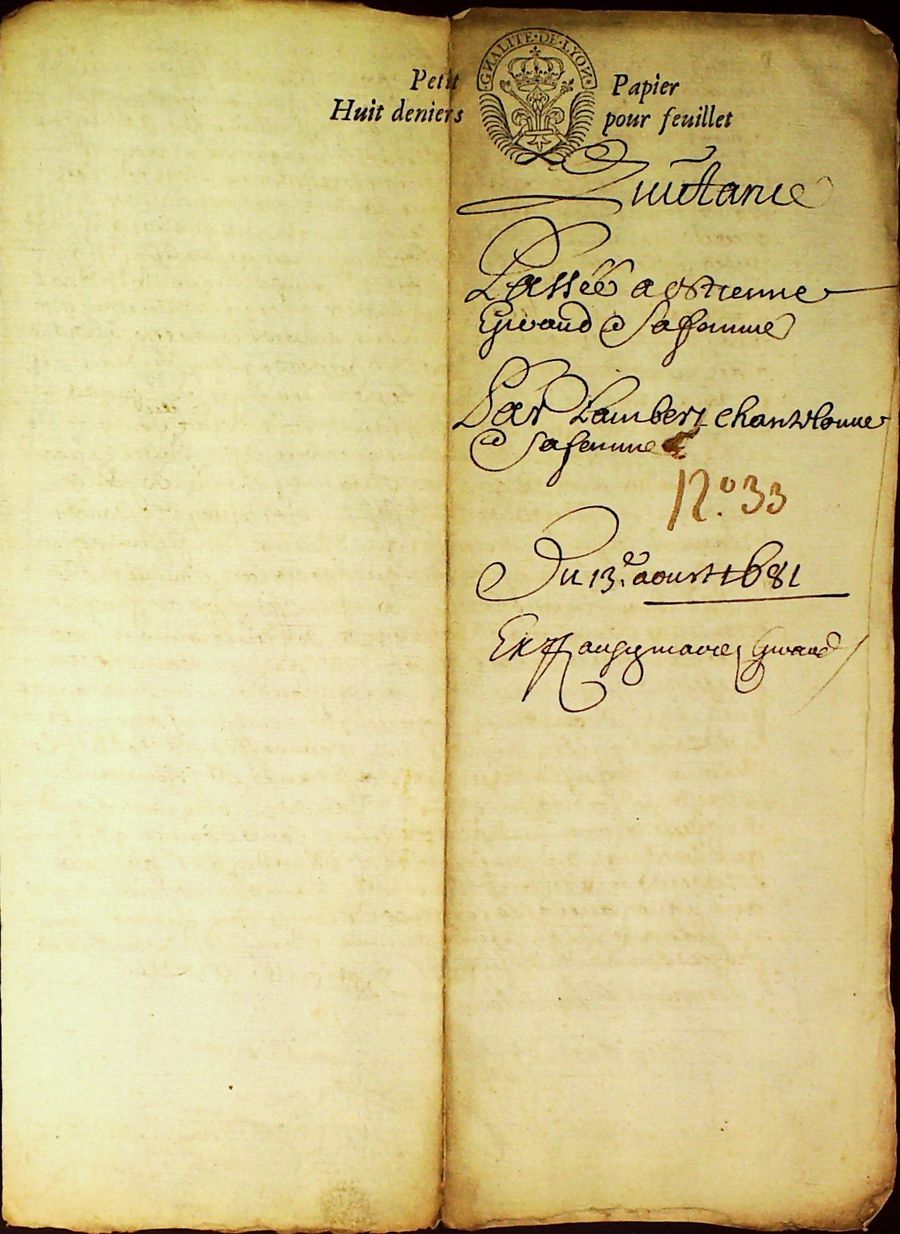 GNALITE·DE·LYON
Petit Papier
Huit deniers pour feuillet
Quictance
Passée a Estienne
Giraud & sa femme
Par Lambert chant
& sa femme
N.º 33
Du 13.e aoust 1681
Giraud